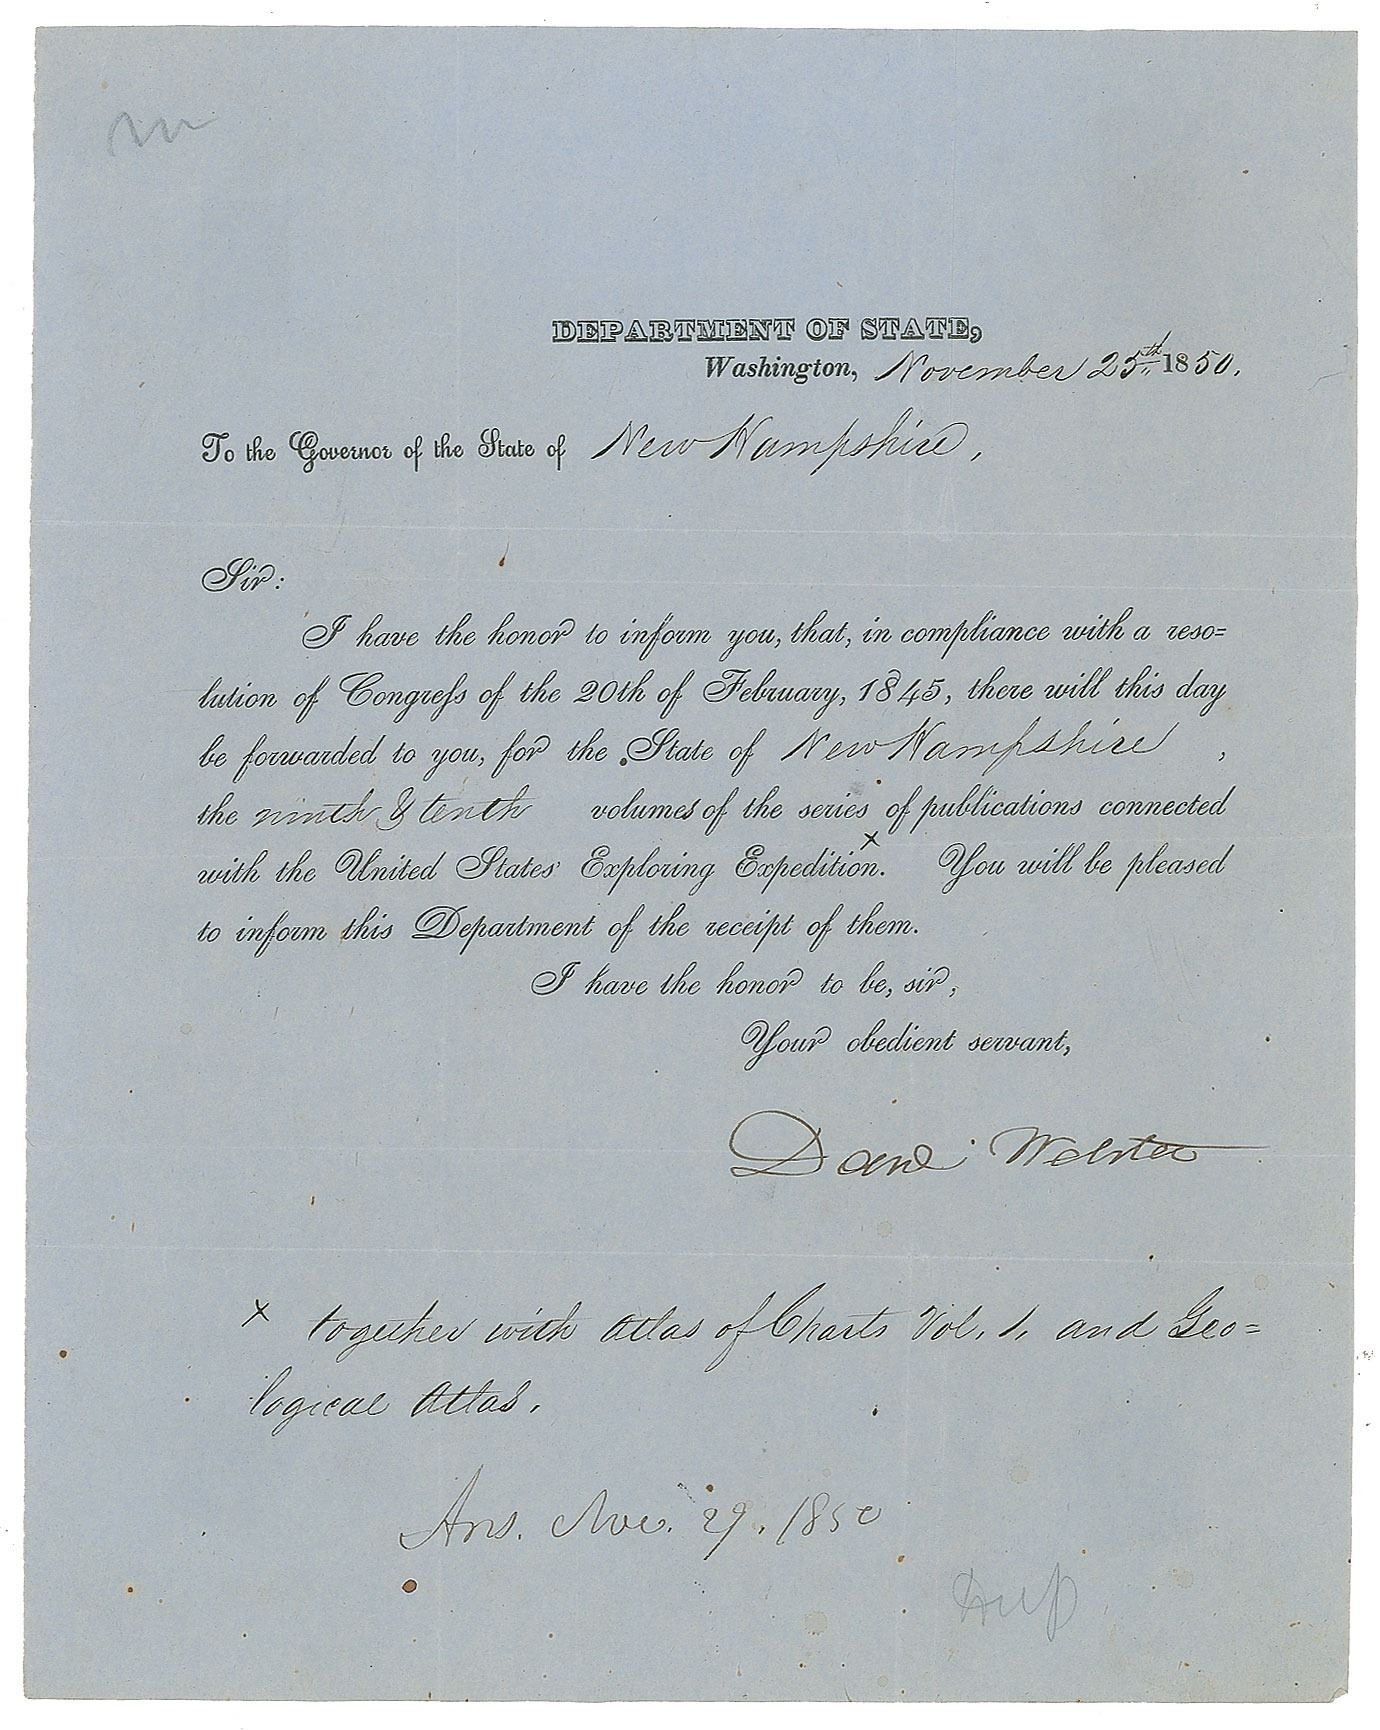 DEPARTMENT OF STATE,
Washington, November 25th 1850.
To the Governor of the State of New Hampshire,
Sir:
I have the honor to inform you, that, in compliance with a reso=
lution of Congress of the 20th of February, 1845, there will this day
be forwarded to you, for the State of New Hampshire,
the ninth & tenth volumes of the series of publications connected
with the United States' Exploring Expedition.x You will be pleased
to inform this Department of the receipt of them.
I have the honor to be, sir,
Your obedient servant,
Danl Webster
x together with Atlas of Charts Vol. 1. and Geo=
logical Atlas.
Ans. Nov. 29. 1850